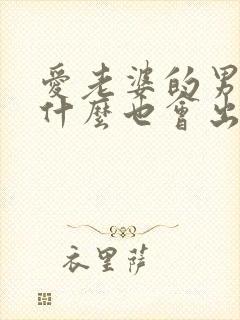 愛老婆的男
什麼也會出
衣里薩